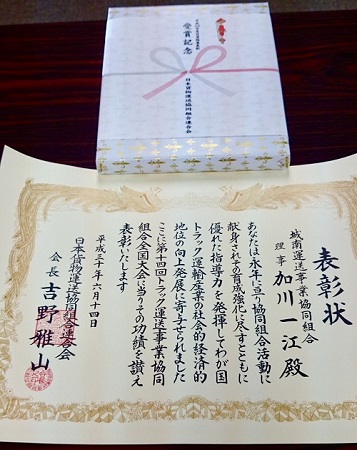 受賞記念
日本貨物運送協同組合連合会
表彰状
城南運送事業協同組合
理事 加川一江殿
あなたは永年に亘り協同組合活動に
献身されその育成強化に尽すとともに
優れた指導力を発揮してわが国
トラック運輸産業の社会的経済的
地位の向上発展に寄与せられました
ここに第十四回トラック運送事業協同
組合全国大会に当りその功績を讃え
表彰いたします
平成三十年六月十四日
日本貨物運送協同組合連合会
会長 吉野雅山